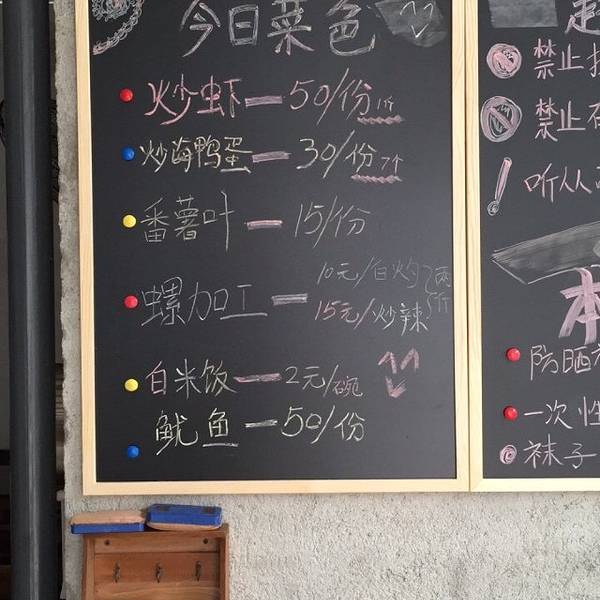 今日菜色
炒虾一50/份1斤
炒海鸭蛋一30/份7个
番薯叶一15/份
螺加工一
10元/白灼
15元/炒辣
两斤
白米饭一2元/碗
鱿鱼一50/份
禁止
禁止
听从
本
防晒
一次性
袜子